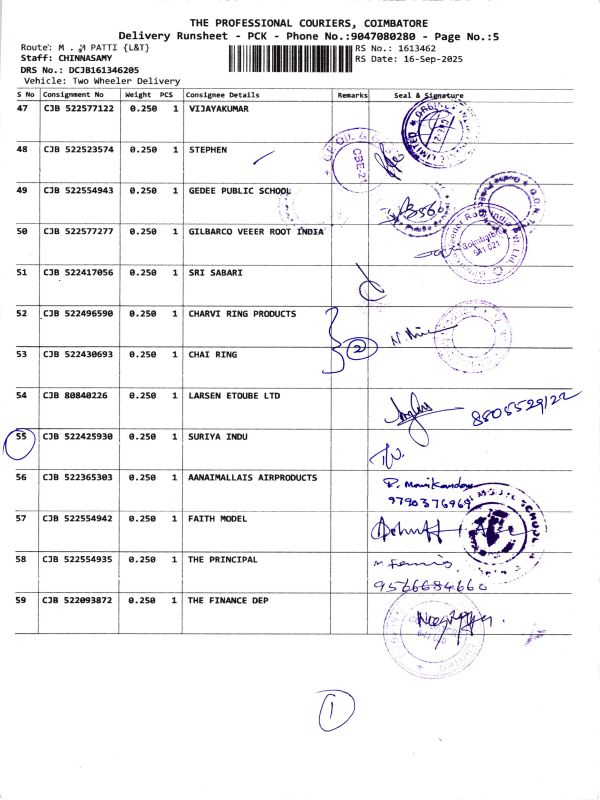 THE PROFESSIONAL COURIERS, COIMBATORE
Delivery Runsheet - PCK - Phone No.:9047080280 - Page No.:5
Route: M . M PATTI {L&T} RS No.: 1613462
Staff: CHINNASAMY RS Date: 16-Sep-2025
DRS No.: DCJB161346205
Vehicle: Two Wheeler Delivery
S No Consignment No Weight PCS Consignee Details Remarks Seal & Signature
47 CJB 522577122 0.250 1 VIJAYAKUMAR
48 CJB 522523574 0.250 1 STEPHEN
CBE-21
49 CJB 522554943 0.250 1 GEDEE PUBLIC SCHOOL
50 CJB 522577277 0.250 1 GILBARCO VEEER ROOT INDIA
Coimbatore
641 021
51 CJB 522417056 0.250 1 SRI SABARI
52 CJB 522496590 0.250 1 CHARVI RING PRODUCTS
2
53 CJB 522430693 0.250 1 CHAI RING
54 CJB 80840226 0.250 1 LARSEN ETOUBE LTD
8805529122
55 CJB 522425930 0.250 1 SURIYA INDU
56 CJB 522365303 0.250 1 AANAIMALLAIS AIRPRODUCTS P. Manikandan
9790376969
57 CJB 522554942 0.250 1 FAITH MODEL
58 CJB 522554935 0.250 1 THE PRINCIPAL
9566684660
59 CJB 522093872 0.250 1 THE FINANCE DEP
1